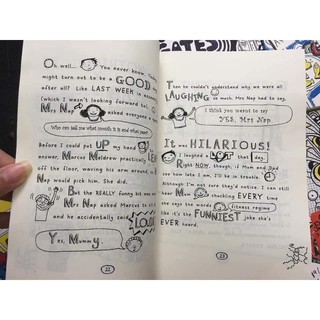 Oh well... You never know. Today
might turn out to be a GOOD day
after all! Like LAST WEEK in assembly
(which I wasn't looking forward to).
Mrs Nap asked everyone a
Who can tell me what month it is and what year?
Before I could put UP my hand
answer, Marcus Meldrew practically
off the floor, waving his arm around, so
Nap would pick him. She did.
But the REALLY funny bit was
Mrs Nap asked Marcus to
and he accidentally said LOUD
Yes, Mummy.
22
Then he couldn't understand why we were all
LAUGHING so much. Mrs Nap had to say,
I think you meant to say
YES, Mrs Nap.
It was HILARIOUS!
I laughed a LOT that day.
Right NOW though, if Mum and Dad
see how late I am, I'll be in trouble.
Although I'm not sure they'd notice. I can still
hear Mum choking EVERY time
she says the words fitness regime
like it's the FUNNIEST joke she's
EVER heard.
23